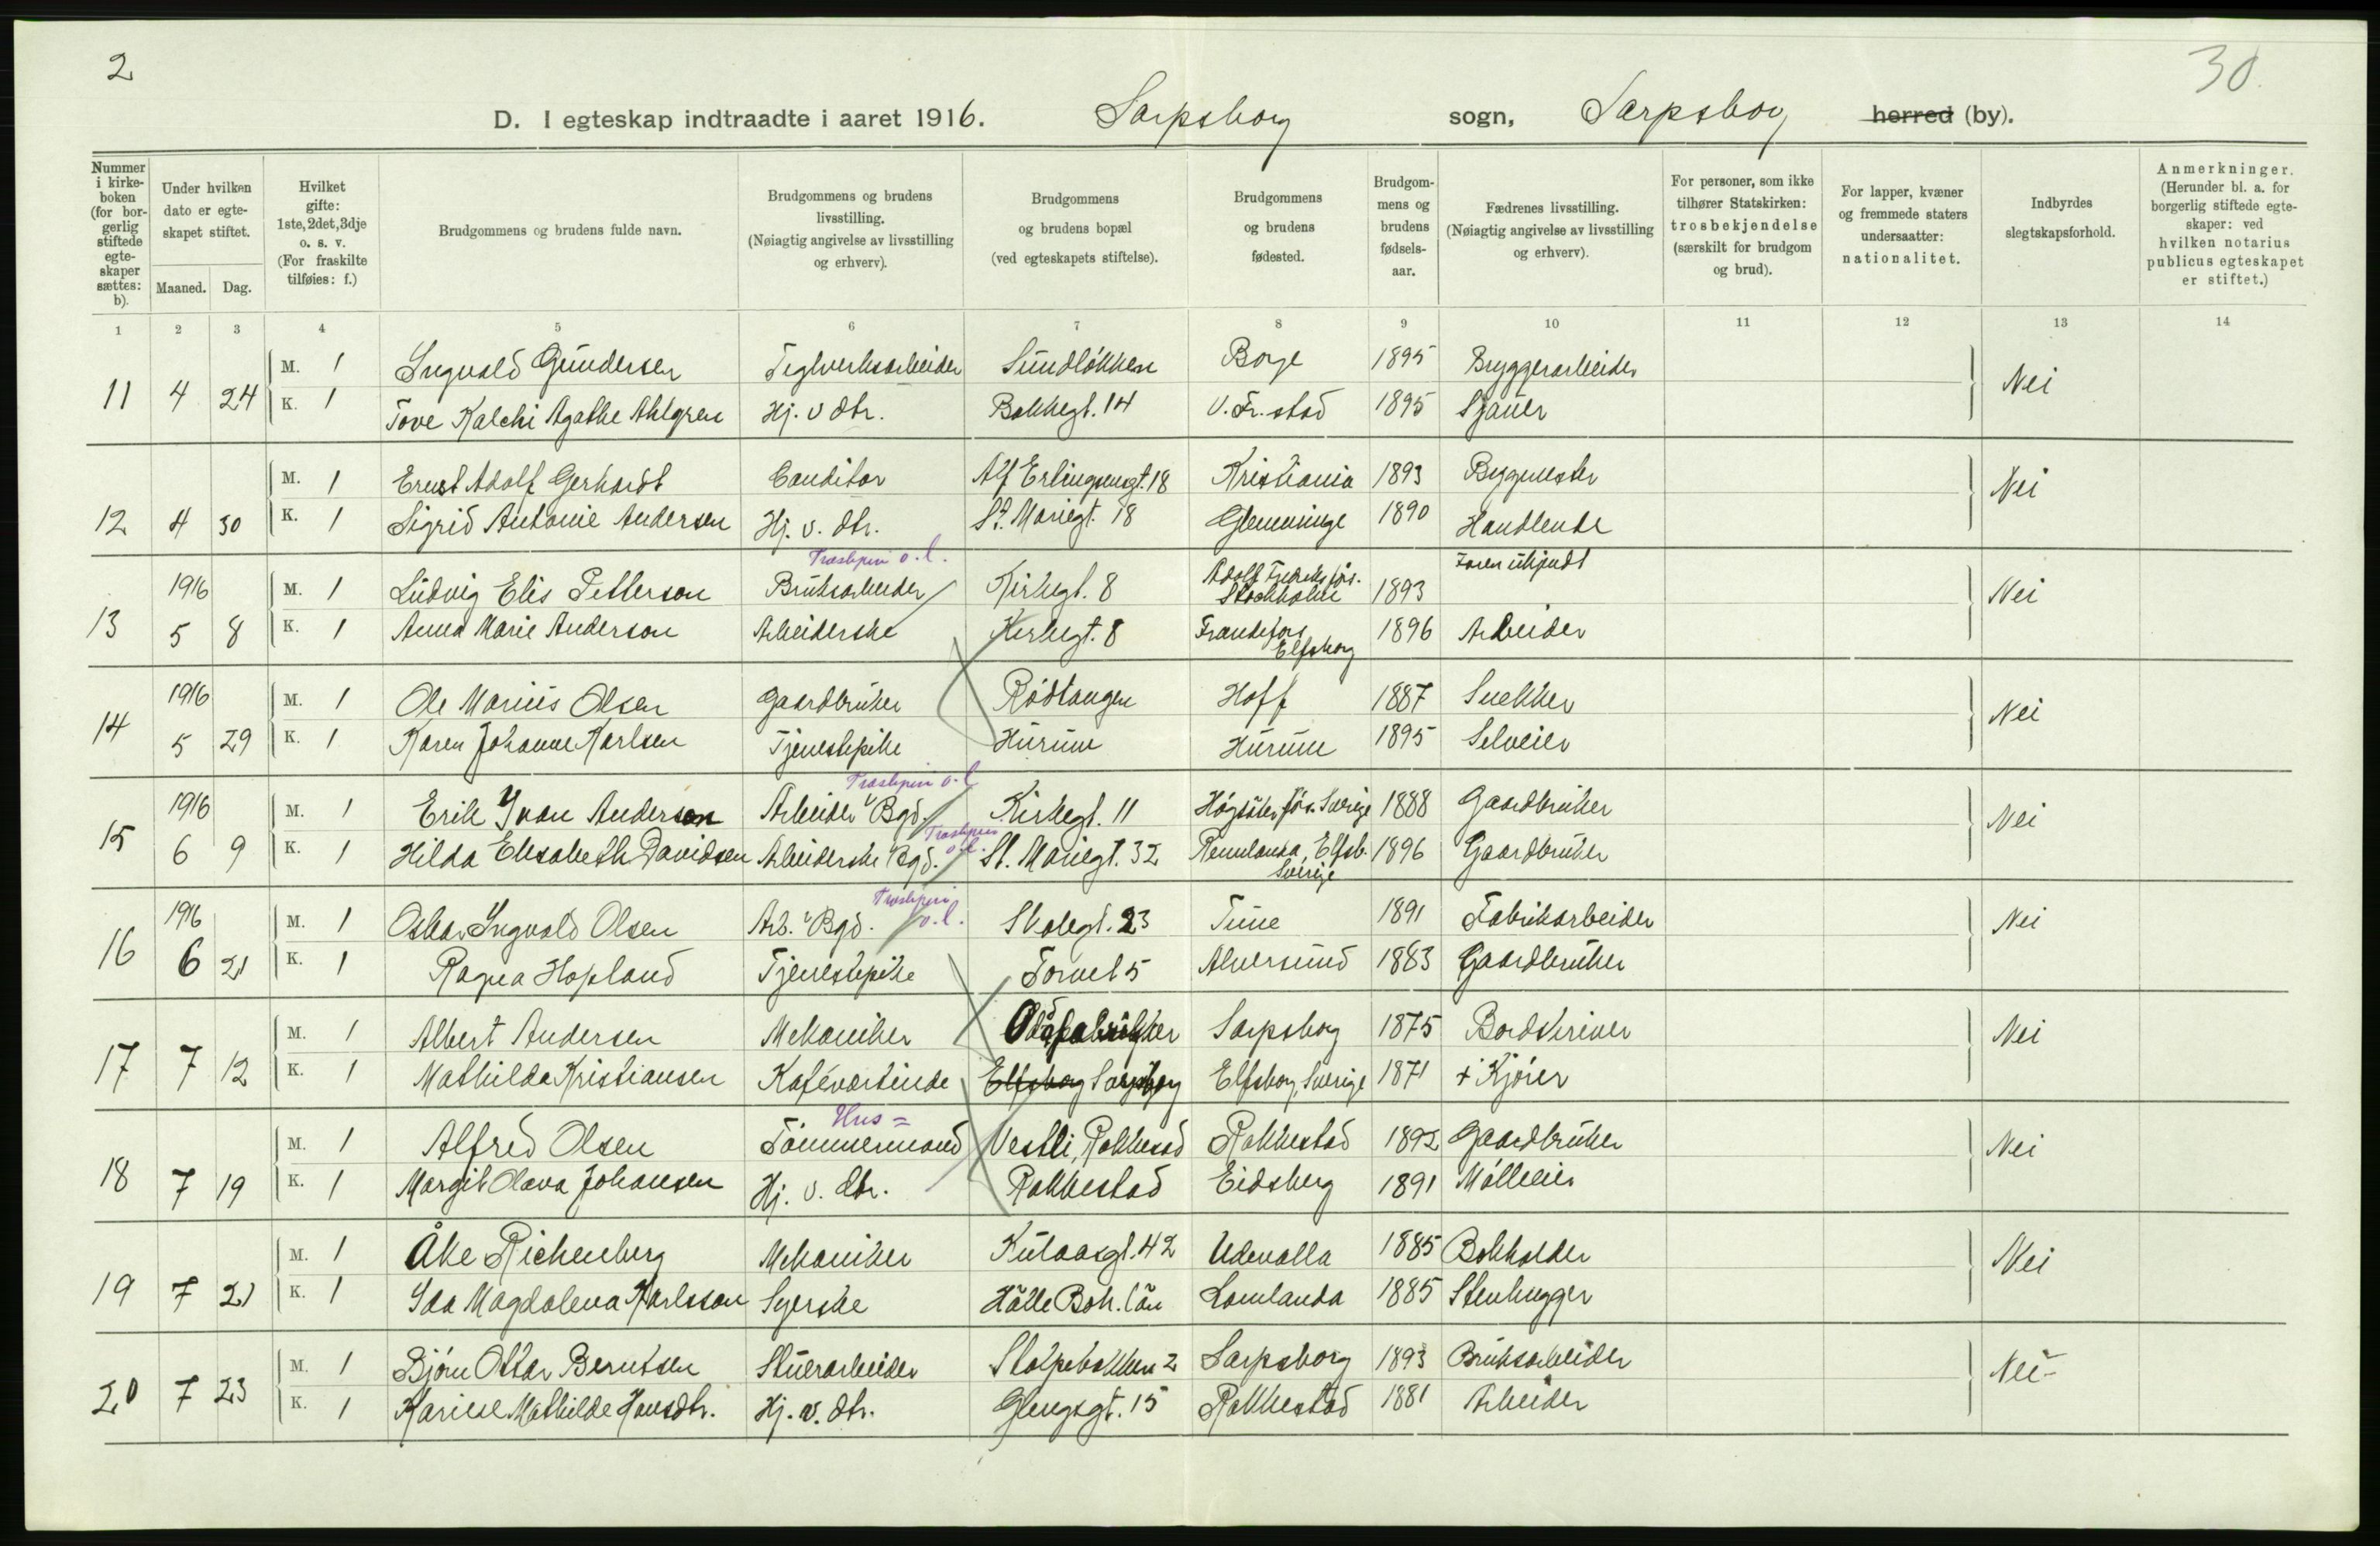 2
30
D. I egteskap indtraadte i aaret 1916. Sarpsborg sogn, Sarpsborg herred (by).
Nummer i kirke-boken (for bor-gerlig stiftede egte-skaper sættes: b).
Under hvilken dato er egte-skapet stiftet.
Maaned. Dag.
Hvilket gifte: 1ste, 2det, 3dje o. s. v. (For fraskilte tilføies: f.)
Brudgommens og brudens fulde navn.
Brudgommens og brudens livsstilling. (Nøiagtig angivelse av livsstilling og erhverv).
Brudgommens og brudens bopæl (ved egteskapets stiftelse).
Brudgommens og brudens fødested.
Brudgom-mens og brudens fødsels-aar.
Fædrenes livsstilling. (Nøiagtig angivelse av livsstilling og erhverv).
For personer, som ikke tilhører Statskirken: trosbekjendelse (særskilt for brudgom og brud).
For lapper, kvæner og fremmede staters undersaatter: nationalitet.
Indbyrdes slegtskapsforhold.
Anmerkninger. (Herunder bl. a. for borgerlig stiftede egte-skaper: ved hvilken notarius publicus egteskapet er stiftet.)
1 2 3 4 5 6 7 8 9 10 11 12 13 14
M. 1 Ingvald Gundersen Teglverksarbeider Sundløkken Borge 1895 Bryggerarbeider
11 4 24 K. 1 Tove Kalchi Agathe Ahlgren Hj. v dtr. Bakkegt. 14 V. Fr. stad 1895 Sjauer Nei
M. 1 Ernst Adolf Gerhardt Conditor Alf Erlingsensgt. 18 Kristiania 1893 Bygmester
12 4 30 K. 1 Sigrid Antonie Andersen Hj. v. dtr. St. Mariegt. 18 Glemminge 1890 Handlende Nei
Træsliperi o. l.
1916 M. 1 Ludvig Elis Petterson Bruksarbeider Kirkegt. 8 Adolf Fredriks förs. Stockholm 1893 Faren ukjendt
13 5 8 K. 1 Anna Marie Anderson Arbeiderske Kirkegt. 8 Frändefors Elfsborg 1896 Arbeider Nei
1916 M. 1 Ole Marius Olsen Gaardbruker Rødtangen Hoff 1887 Snekker
14 5 29 K. 1 Karen Johanne Karlsen Tjenestepike Hurum Hurum 1895 Selveier Nei
Træsliperi o. l.
1916 M. 1 Erik Yvan Anderson Arbeider v Bgd. Kirkegt. 11 Högsäter förs. Sverige 1888 Gaardbruker
Træsliperi o. l.
15 6 9 K. 1 Hilda Elisabeth Davidsen Arbeiderske Bgd. St. Mariegt. 32 Elfsb. Sverige 1896 Gaardbruker Nei
Træsliperi o. l.
1916 M. 1 Oskar Ingvald Olsen Arb. v Bgd. Skolegt. 23 Tune 1891 Fabrikarbeider
16 6 21 K. 1 Ragna Hopland Tjenestepike Torvet 5 Alversund 1883 Gaardbruker Nei
M. 1 Albert Andersen Mekaniker Sarpsborg 1875 Bordskriver
17 7 12 K. 1 Mathilda Kristiansen Kaféværtinde Elfsborg Sarpsborg Elfsborg, Sverige 1871 + Kjører Nei
Hus=
M. 1 Alfred Olsen Tømmermand Vestli, Rakkestad Rakkestad 1892 Gaardbruker
18 7 19 K. 1 Margit Olava Johansen Hj. v. dtr. Rakkestad Eidsberg 1891 Mølleeier Nei
M. 1 Åke Richenberg Mekaniker Kulaasgt. 42 Udevalla 1885 Bokholder
19 7 21 K. 1 Ida Magdalena Karlsson Syerske Hälle Boh. län Lomlanda 1885 Stenhugger Nei
M. 1 Bjørn Ottar Berntsen Stuerarbeider Stolpebakken 2 Sarpsborg 1893 Bruksarbeider
20 7 23 K. 1 Kariese Mathilde Hansdtr. Hj. v. dtr. Glengsgt. 15 Rakkestad 1881 Arbeider Nei